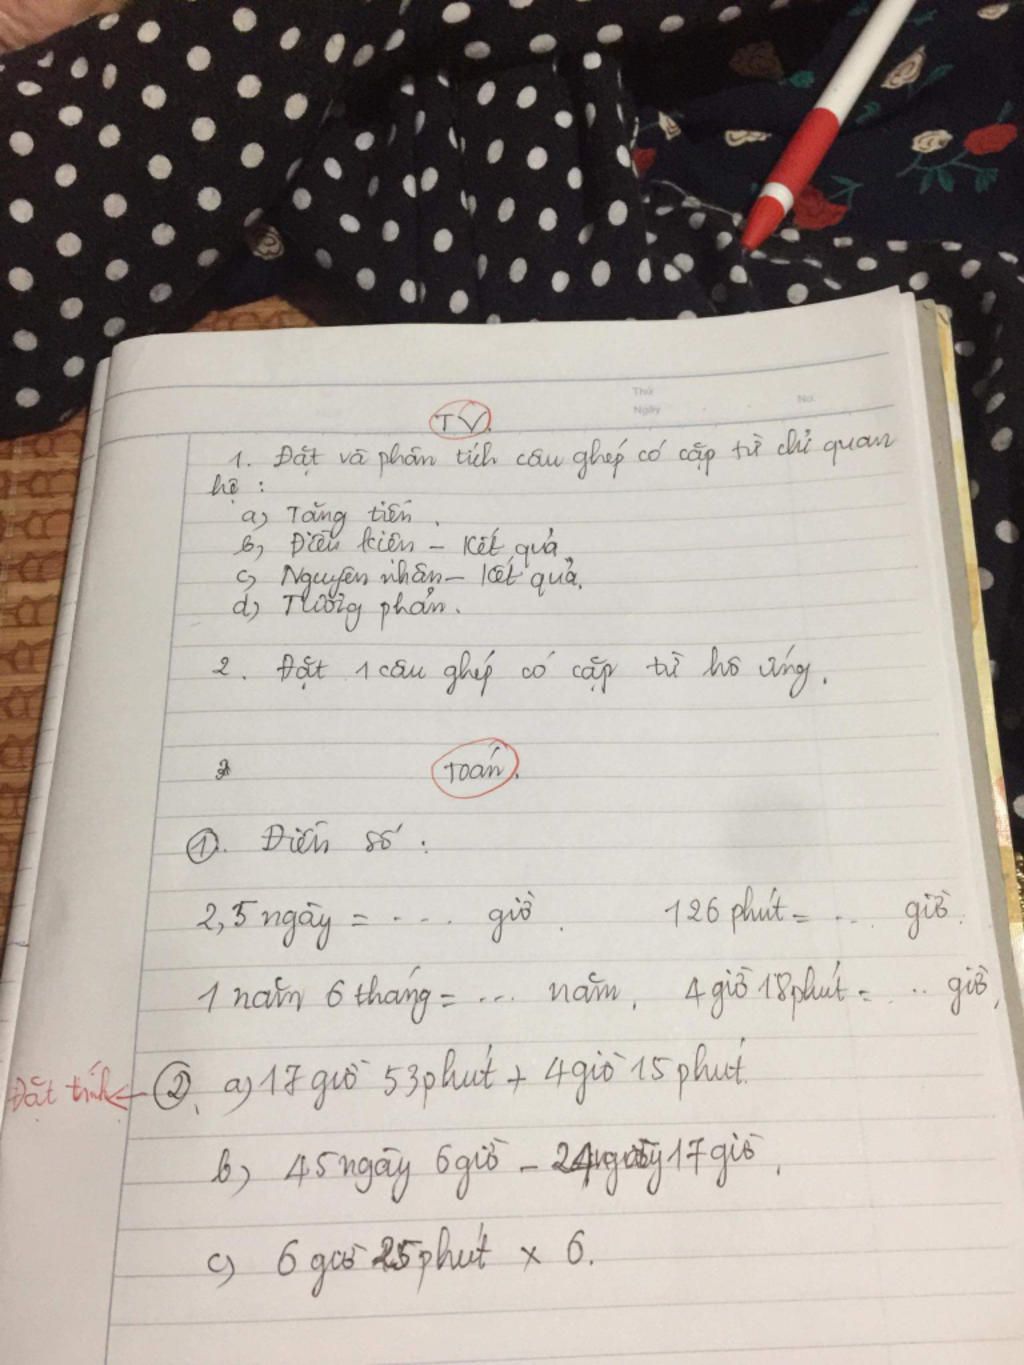 Thứ
Ngày
No.
TV.
1. Đặt và phân tích câu ghép có cặp từ chỉ quan
hệ :
a) Tăng tiến.
b) Điều kiên - Kết quả.
c) Nguyên nhân - Kết quả.
d) Tương phản.
2. Đặt 1 câu ghép có cặp từ hô ứng.
Toán.
1. Điền số :
2,5 ngày = .... giờ. 126 phút = ... giờ.
1 năm 6 tháng = ... năm. 4 giờ 18 phút = ... giờ.
Đặt tính ← 2. a) 17 giờ 53 phút + 4 giờ 15 phút.
b) 45 ngày 6 giờ - 24 ngày 17 giờ.
c) 6 giờ 25 phút x 6.